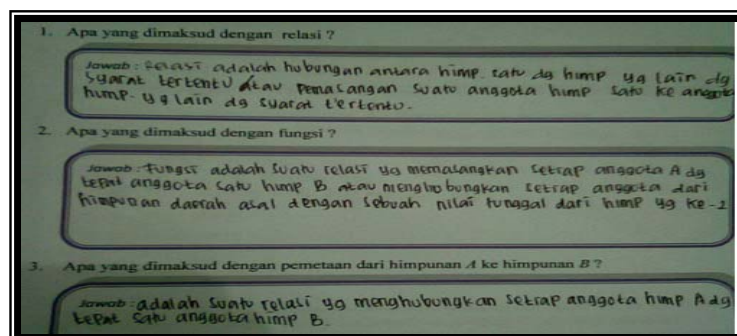 1. Apa yang dimaksud dengan relasi ?
Jawab : Relasi adalah hubungan antara himp. satu dg himp yg lain dg
syarat tertentu atau pemasangan suatu anggota himp satu ke anggota
himp. yg lain dg syarat tertentu.
2. Apa yang dimaksud dengan fungsi ?
Jawab : Fungsi adalah suatu relasi yg memasangkan setiap anggota A dg
tepat anggota satu himp B atau menghubungkan setiap anggota dari
himpunan daerah asal dengan sebuah nilai tunggal dari himp yg ke-2
3. Apa yang dimaksud dengan pemetaan dari himpunan A ke himpunan B ?
Jawab : adalah suatu relasi yg menghubungkan setiap anggota himp A dg
tepat satu anggota himp B.